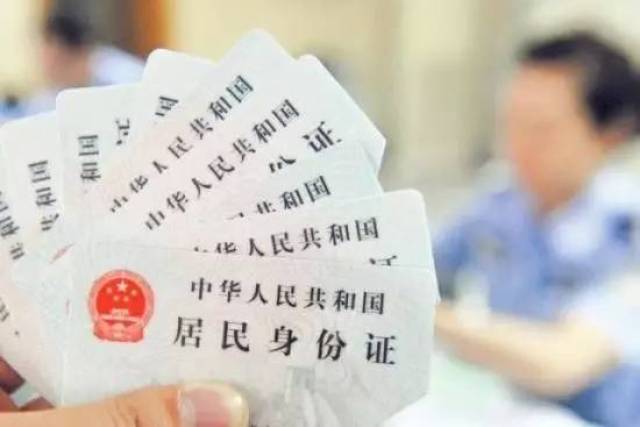 中华人民共和国
中华人民共和国
证
共和国
中华人民共和国
证
中华人民共和国
居民身份证